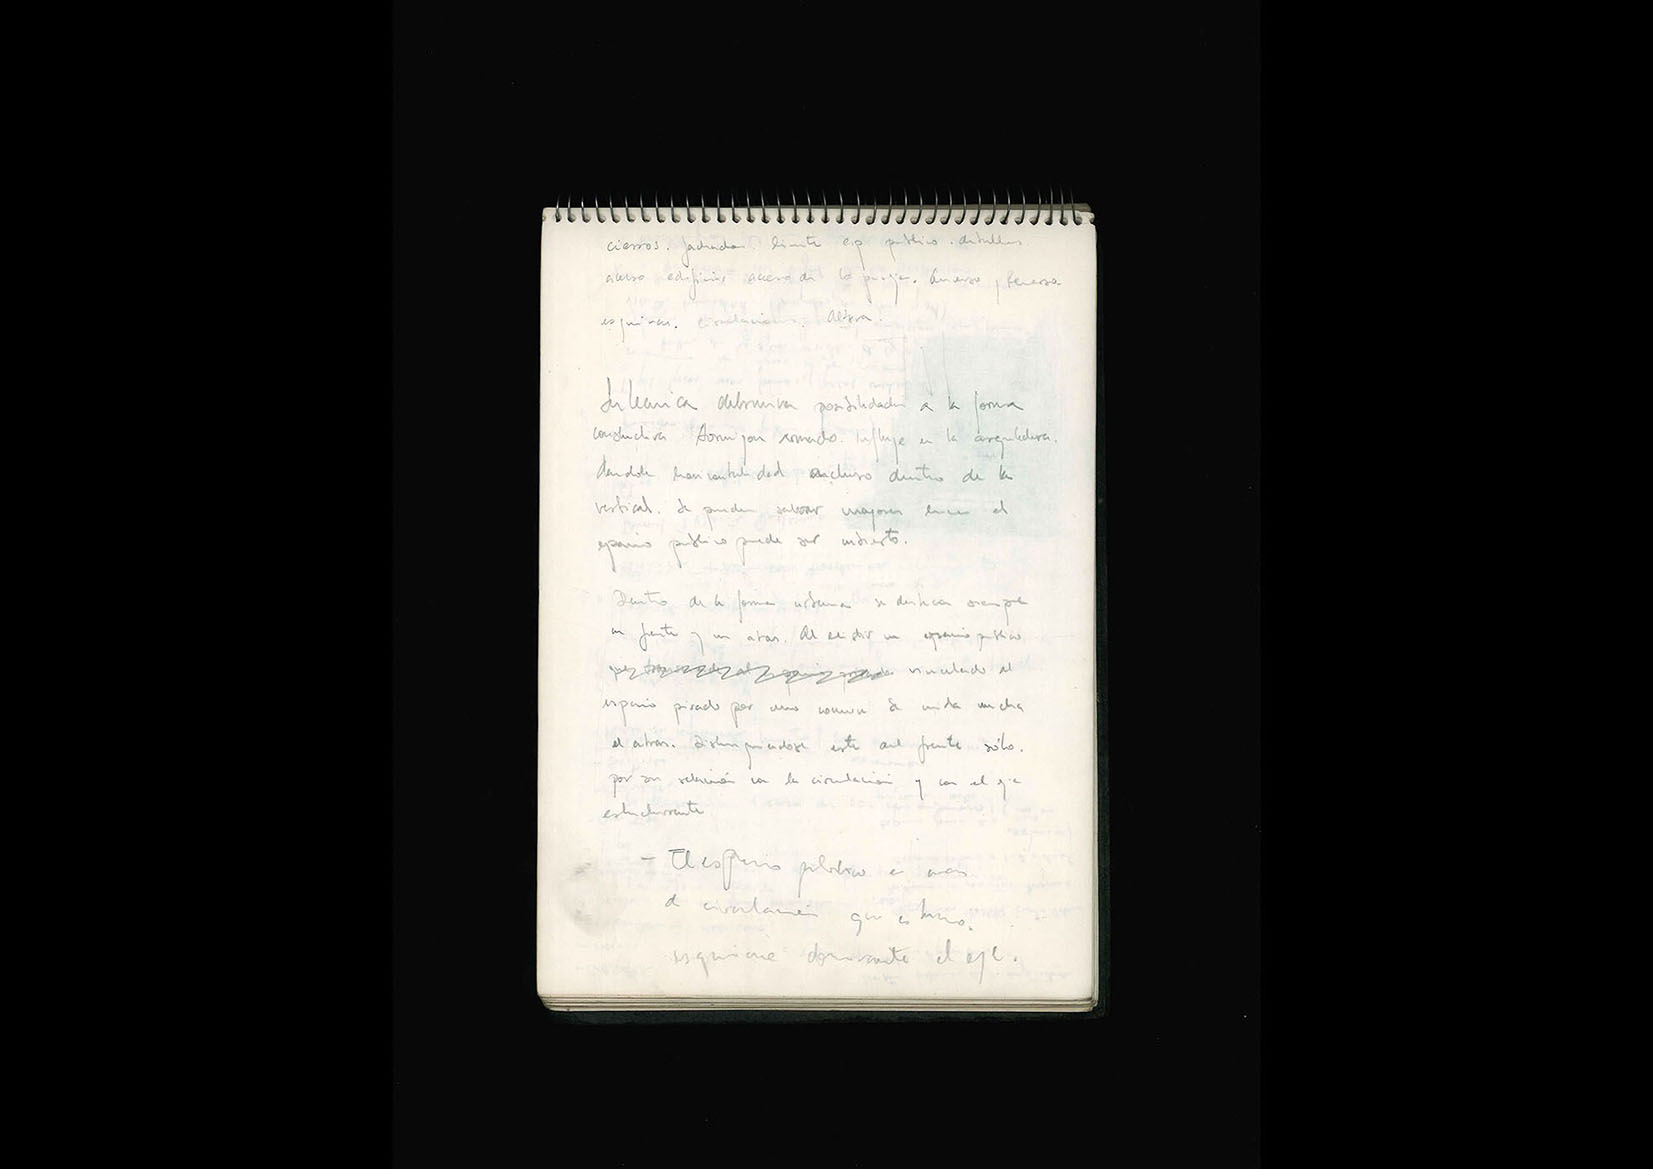 cierros. fachadas. limite esp publico. detalles
acceso edificios acera de la pareja. Anverso y Reverso
esquinas. circulaciones. Altura.
La tecnica determina posibilidades a la forma
constructiva Hormigon armado. Influye en la arquitectura.
dandole horizontalidad incluso dentro de la
vertical. Se pueden salvar mayores luces el
espacio público puede ser cubierto.
Dentro de la forma urbana se destacan siempre
un frente y un atras. Al existir un espacio publico
vinculado al
espacio privado por uno comun Se anida mucha
el atras. Distinguiendose este del frente sólo.
por su relación con la circulación y con el eje
estructurante
- El espacio público es mas
de circulacion que estarse.
esquina dominante el eje.